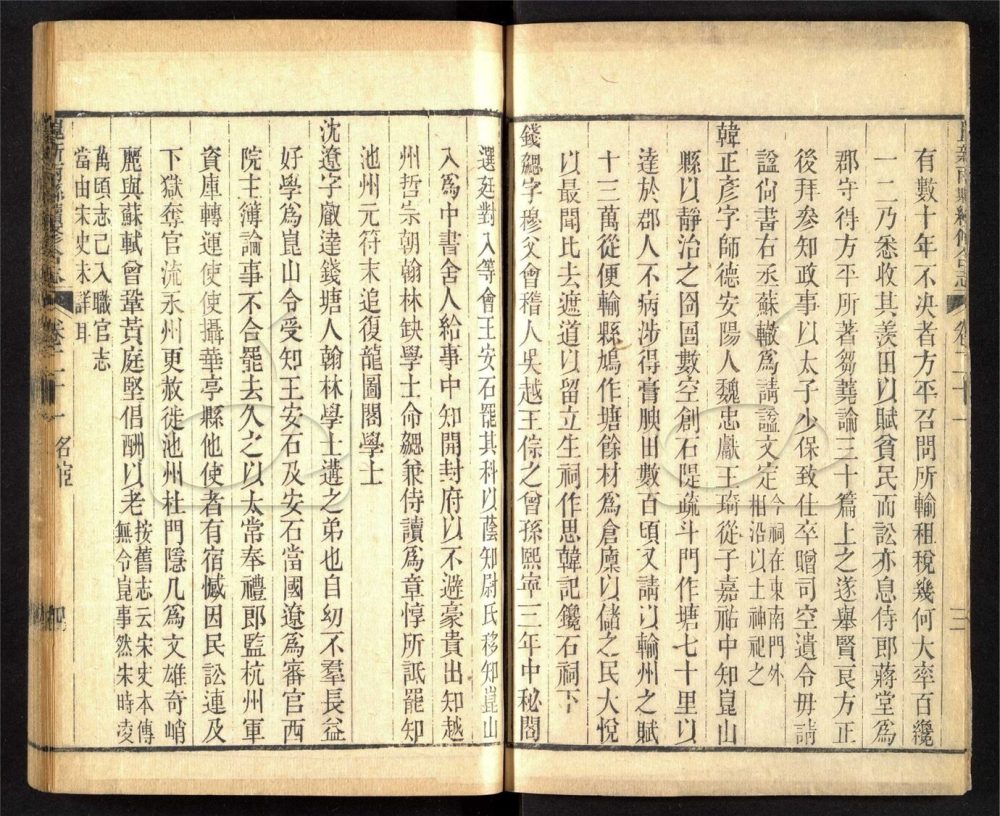 有數十年不决者方平召問所輸租稅幾何大率百纔
一二乃悉收其羨田以賦貧民而訟亦息侍郎蔣堂爲
郡守得方平所著芻蕘論三十篇上之遂舉賢良方正
後拜參知政事以太子少保致仕卒贈司空遺令毋請
諡尙書右丞蘇轍爲請諡文定今祠在東南門外
相沿以土神祀之
韓正彥字師德安陽人魏忠獻王琦從子嘉祐中知崑山
縣以靜治之囹圄數空創石隄疏斗門作塘七十里以
達於郡人不病涉得膏腴田數百頃又請以輸州之賦
十三萬從便輸縣鳩作塘餘材爲倉廩以儲之民大悅
以最聞比去遮道以留立生祠作思韓記鑱石祠下
錢勰字穆父會稽人吳越王倧之曾孫熙寧三年中秘閣
選廷對入等會王安石罷其科以蔭知尉氏移知崑山
入爲中書舍人給事中知開封府以不避豪貴出知越
州哲宗朝翰林缺學士命勰兼侍讀爲章惇所詆罷知
池州元符末追復龍圖閣學士
沈遼字叡達錢塘人翰林學士遘之弟也自幼不羣長益
好學爲崑山令受知王安石及安石當國遼爲審官西
院主簿論事不合罷去久之以太常奉禮郎監杭州軍
資庫轉運使使攝華亭縣他使者有宿憾因民訟連及
下獄奪官流永州更赦徙池州杜門隱几爲文雄奇峭
麗與蘇軾曾鞏黃庭堅倡酬以老按舊志云宋史本傳
無令崑事然朱時凌
萬頃志已入職官志
當由宋史未詳耳
崑新兩縣續修合志
卷二十一
名宦
三